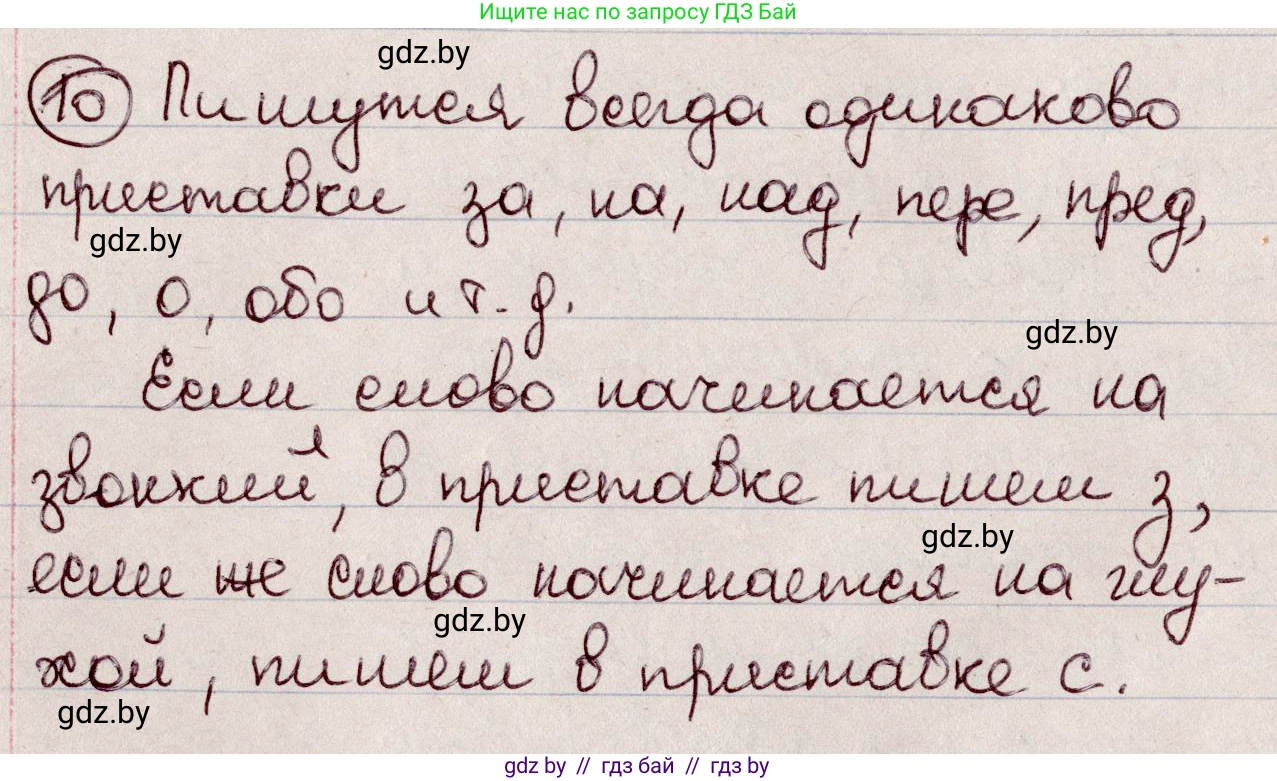 Ищите нас по запросу ГДЗ Бай
gdz.by
10 Пишутся всегда одинаково
приставки за, на, над, пере, пред,
gdz.by
до, о, обо и т.д.
gdz.by
Если слово начинается на
звонкий, в приставке пишем з,
gdz.by
если же слово начинается на глу-
gdz.by
хой, пишем в приставке с.
gdz.by
gdz.by // гдз бай // гдз by